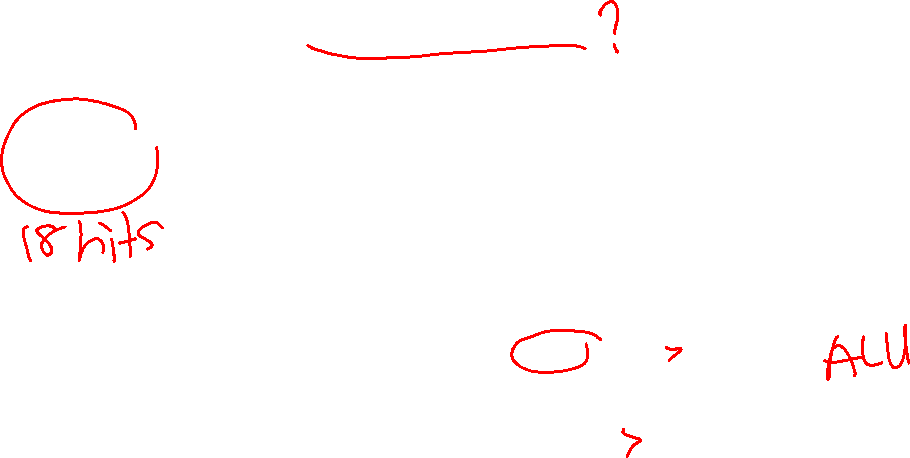 ?
18 hits
> ALU
>